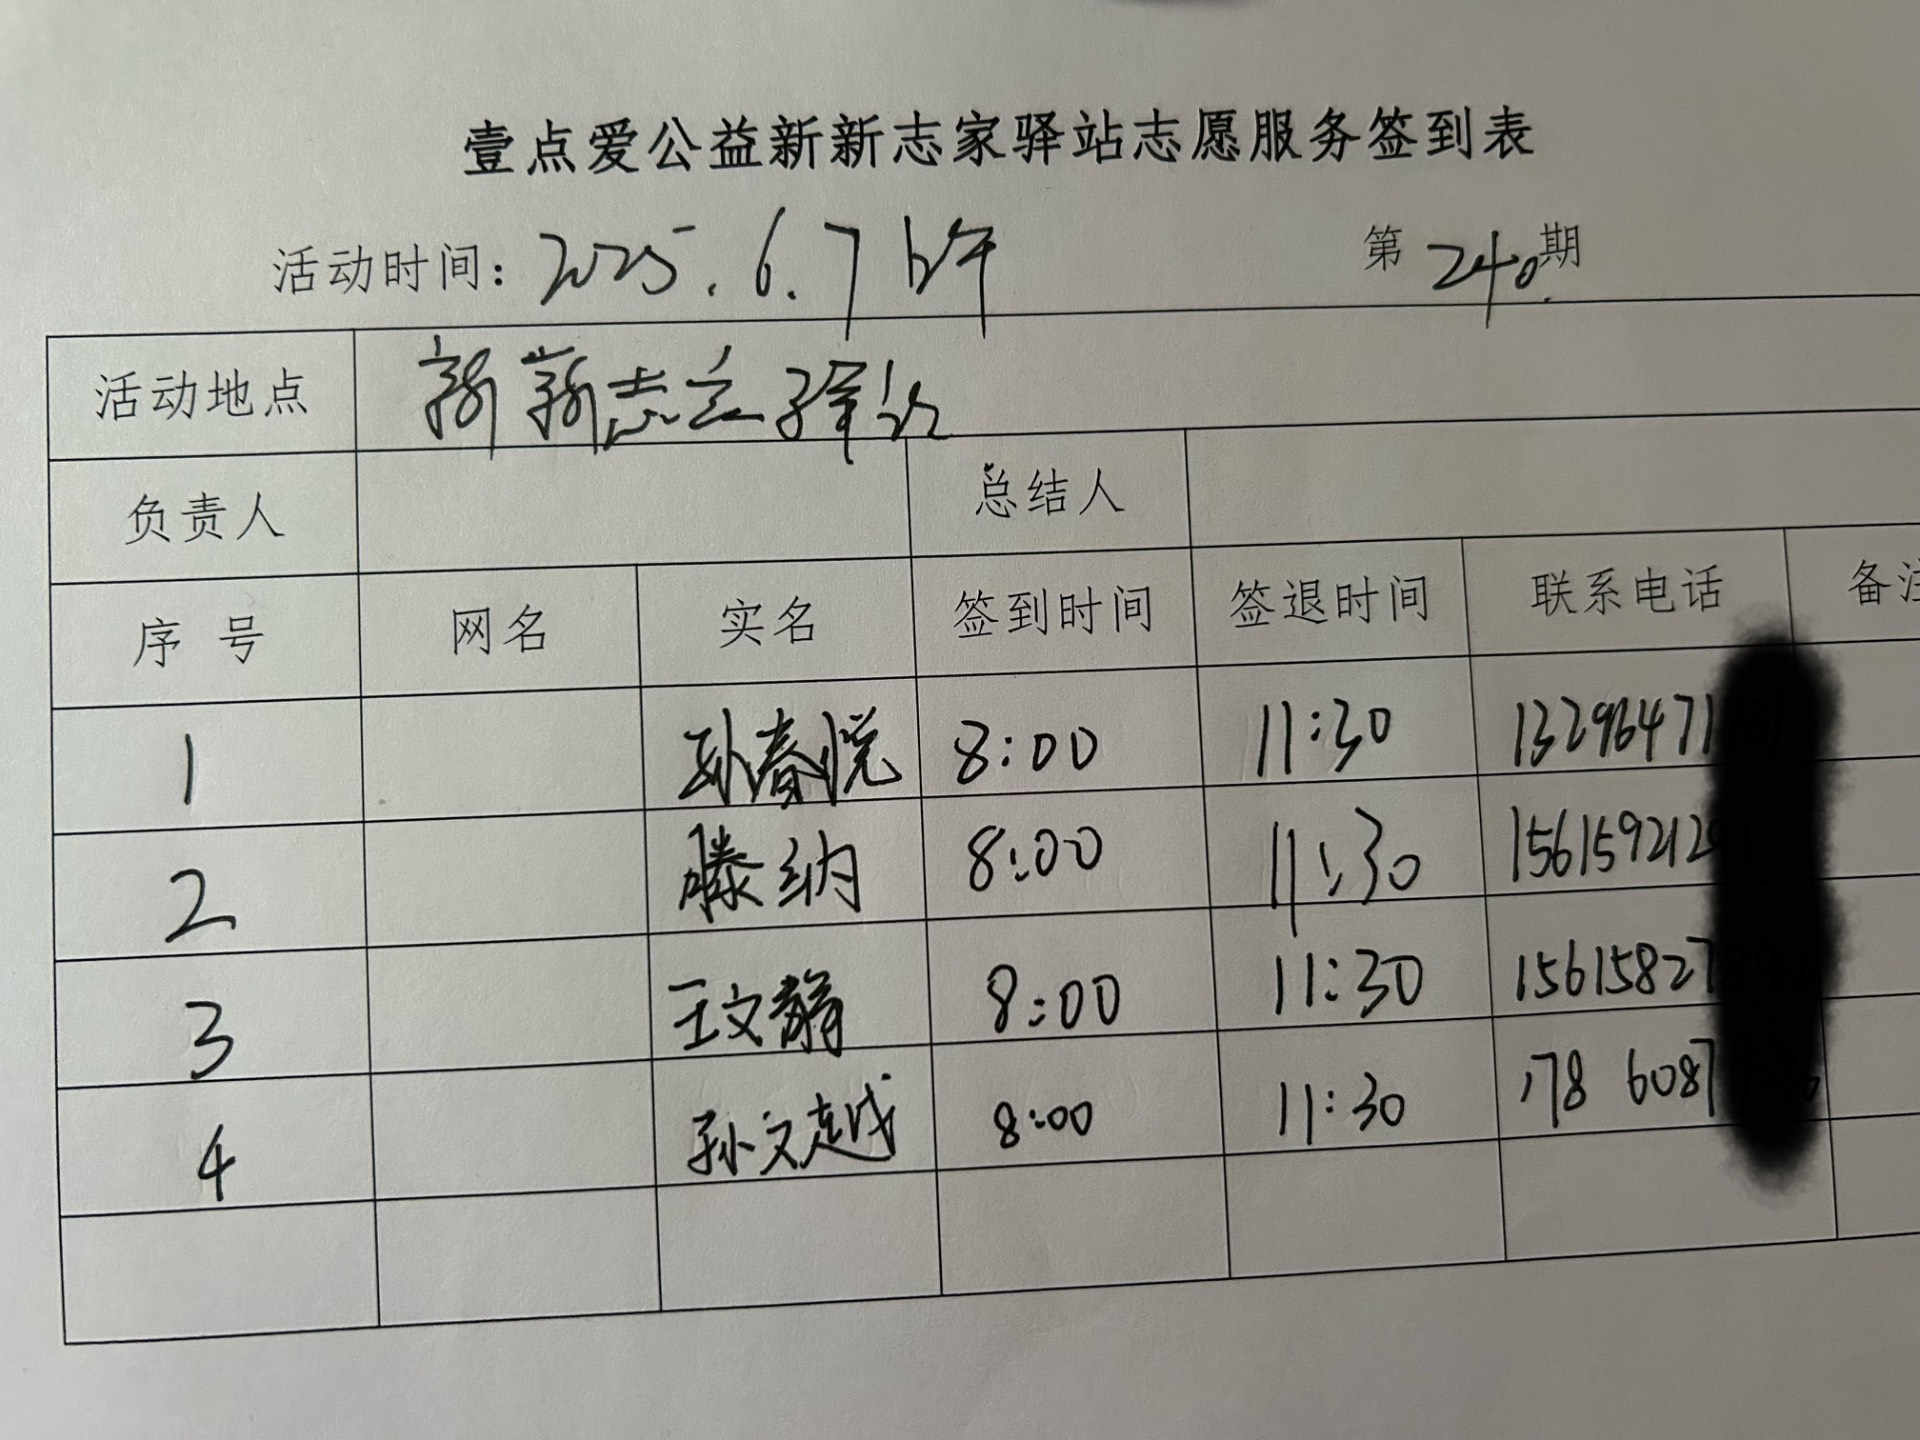 壹点爱公益新新志家驿站志愿服务签到表
活动时间：2025.6.7上午 第240期
活动地点 新新志立驿站
负责人 总结人
序号 网名 实名 签到时间 签退时间 联系电话 备注
1 孙春悦 8:00 11:30 13296471
2 滕纳 8:00 11:30 156159212
3 王文静 8:00 11:30 15615827
4 孙文越 8:00 11:30 178 6087